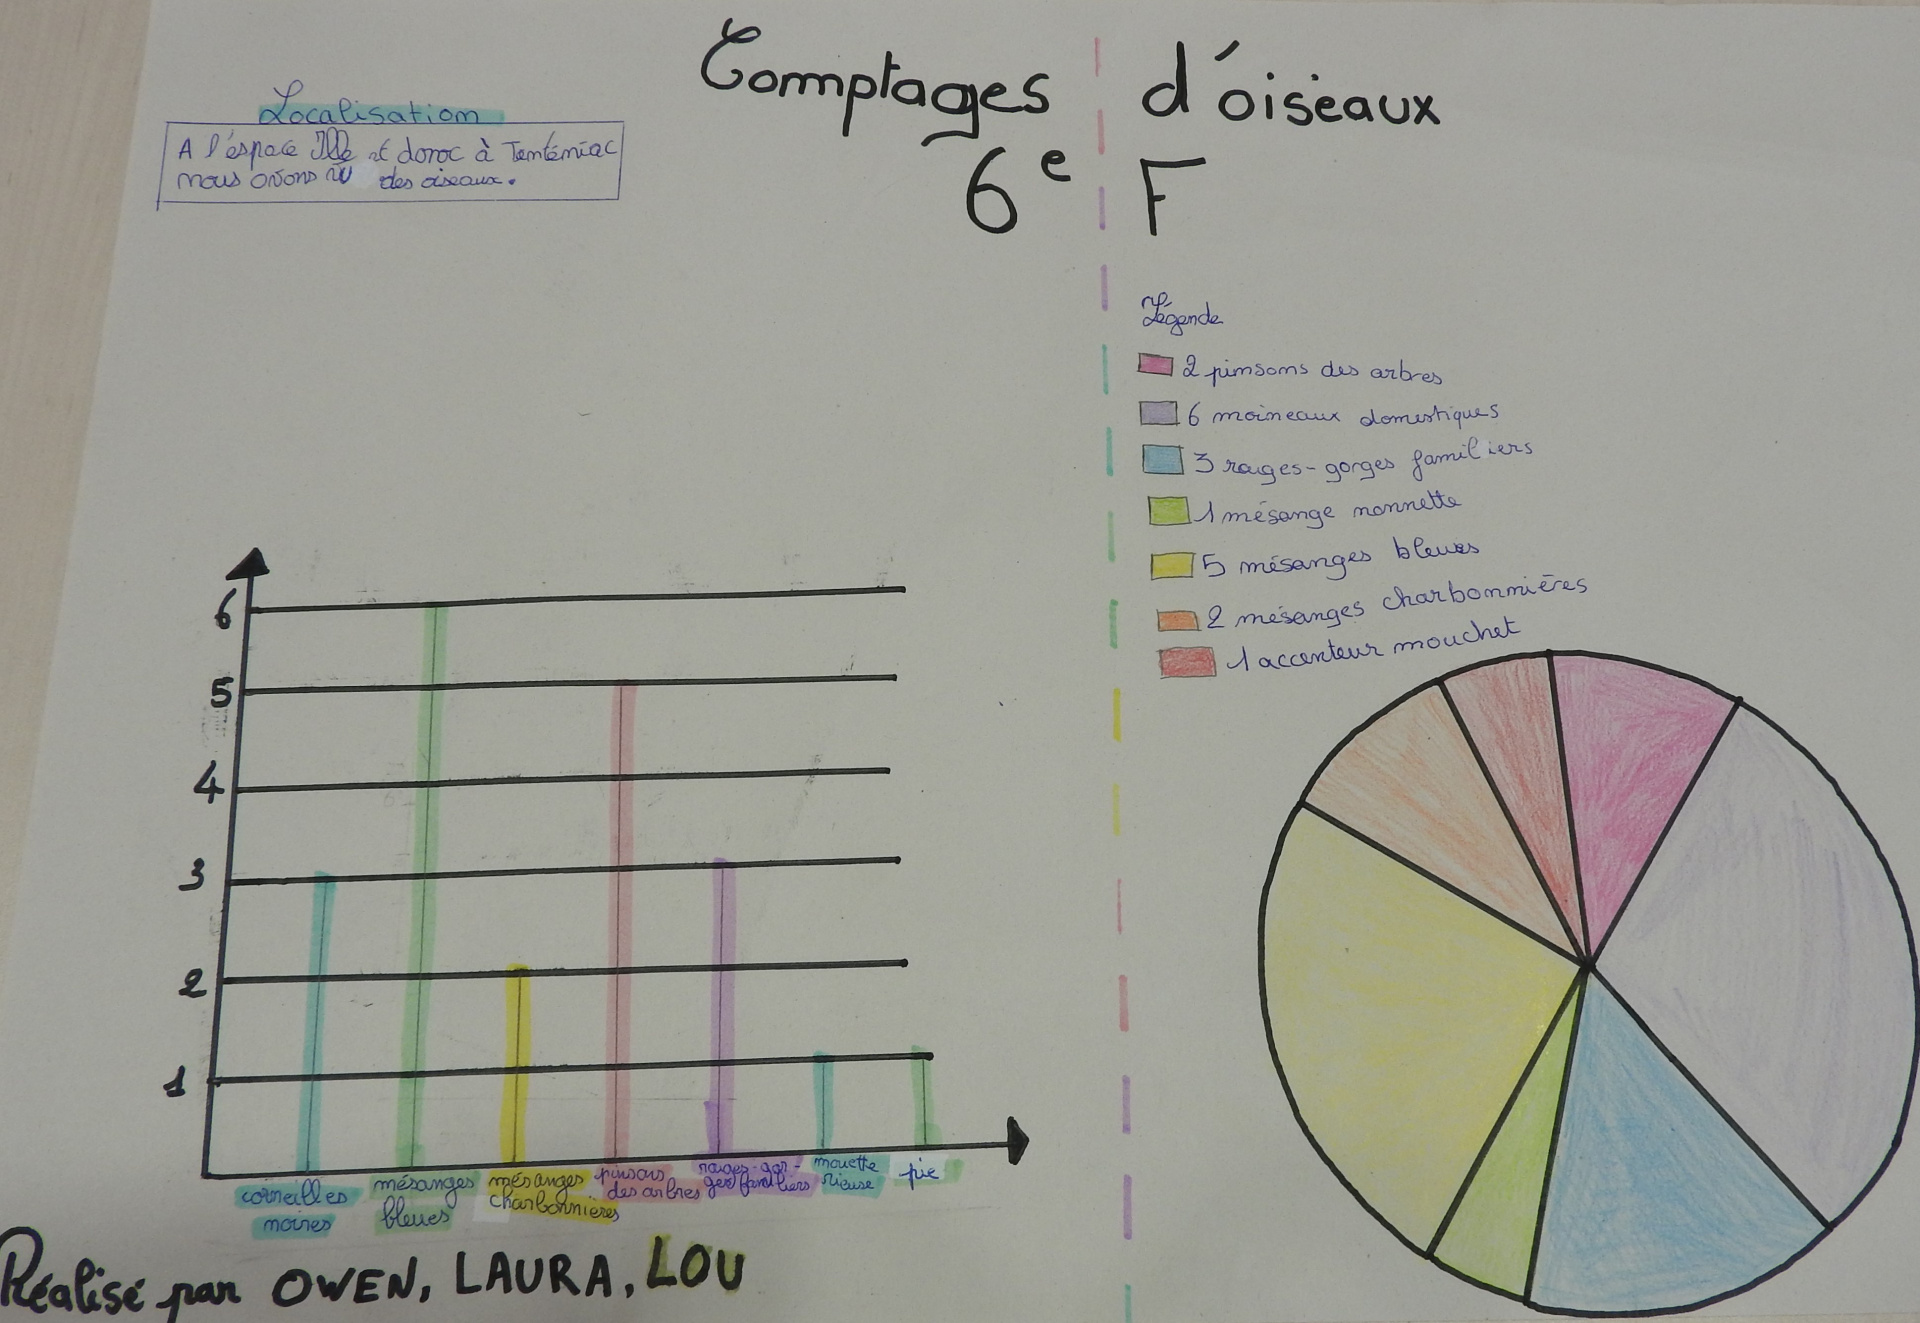 Comptages d'oiseaux
6e F
Localisation
A l'éspace Ille et donac à Tenténiac
nous avons vu des oiseaux.
Légende
2 pinsons des arbres
6 moineaux domestiques
3 rouges-gorges familiers
1 mésange nonnette
5 mésanges bleues
2 mésanges charbonnières
1 accenteur mouchet
6
5
4
3
2
1
corneilles
noires
mésanges
bleues
mésanges
charbonnières
pinsons
des arbres
rouges-gor-
ges familiers
mouette
rieuse
pie
Réalisé par OWEN, LAURA, LOU